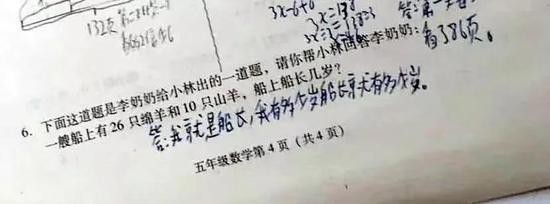 132页
3x-6+6
答:第一
有386页。
6. 下面这道题是李奶奶给小林出的一道题，请你帮小林回答李奶奶：
一艘船上有 26 只绵羊和 10 只山羊，船上船长几岁？
答:我就是船长,我有多少岁船长就有多少岁。
五年级数学第 4 页（共 4 页）